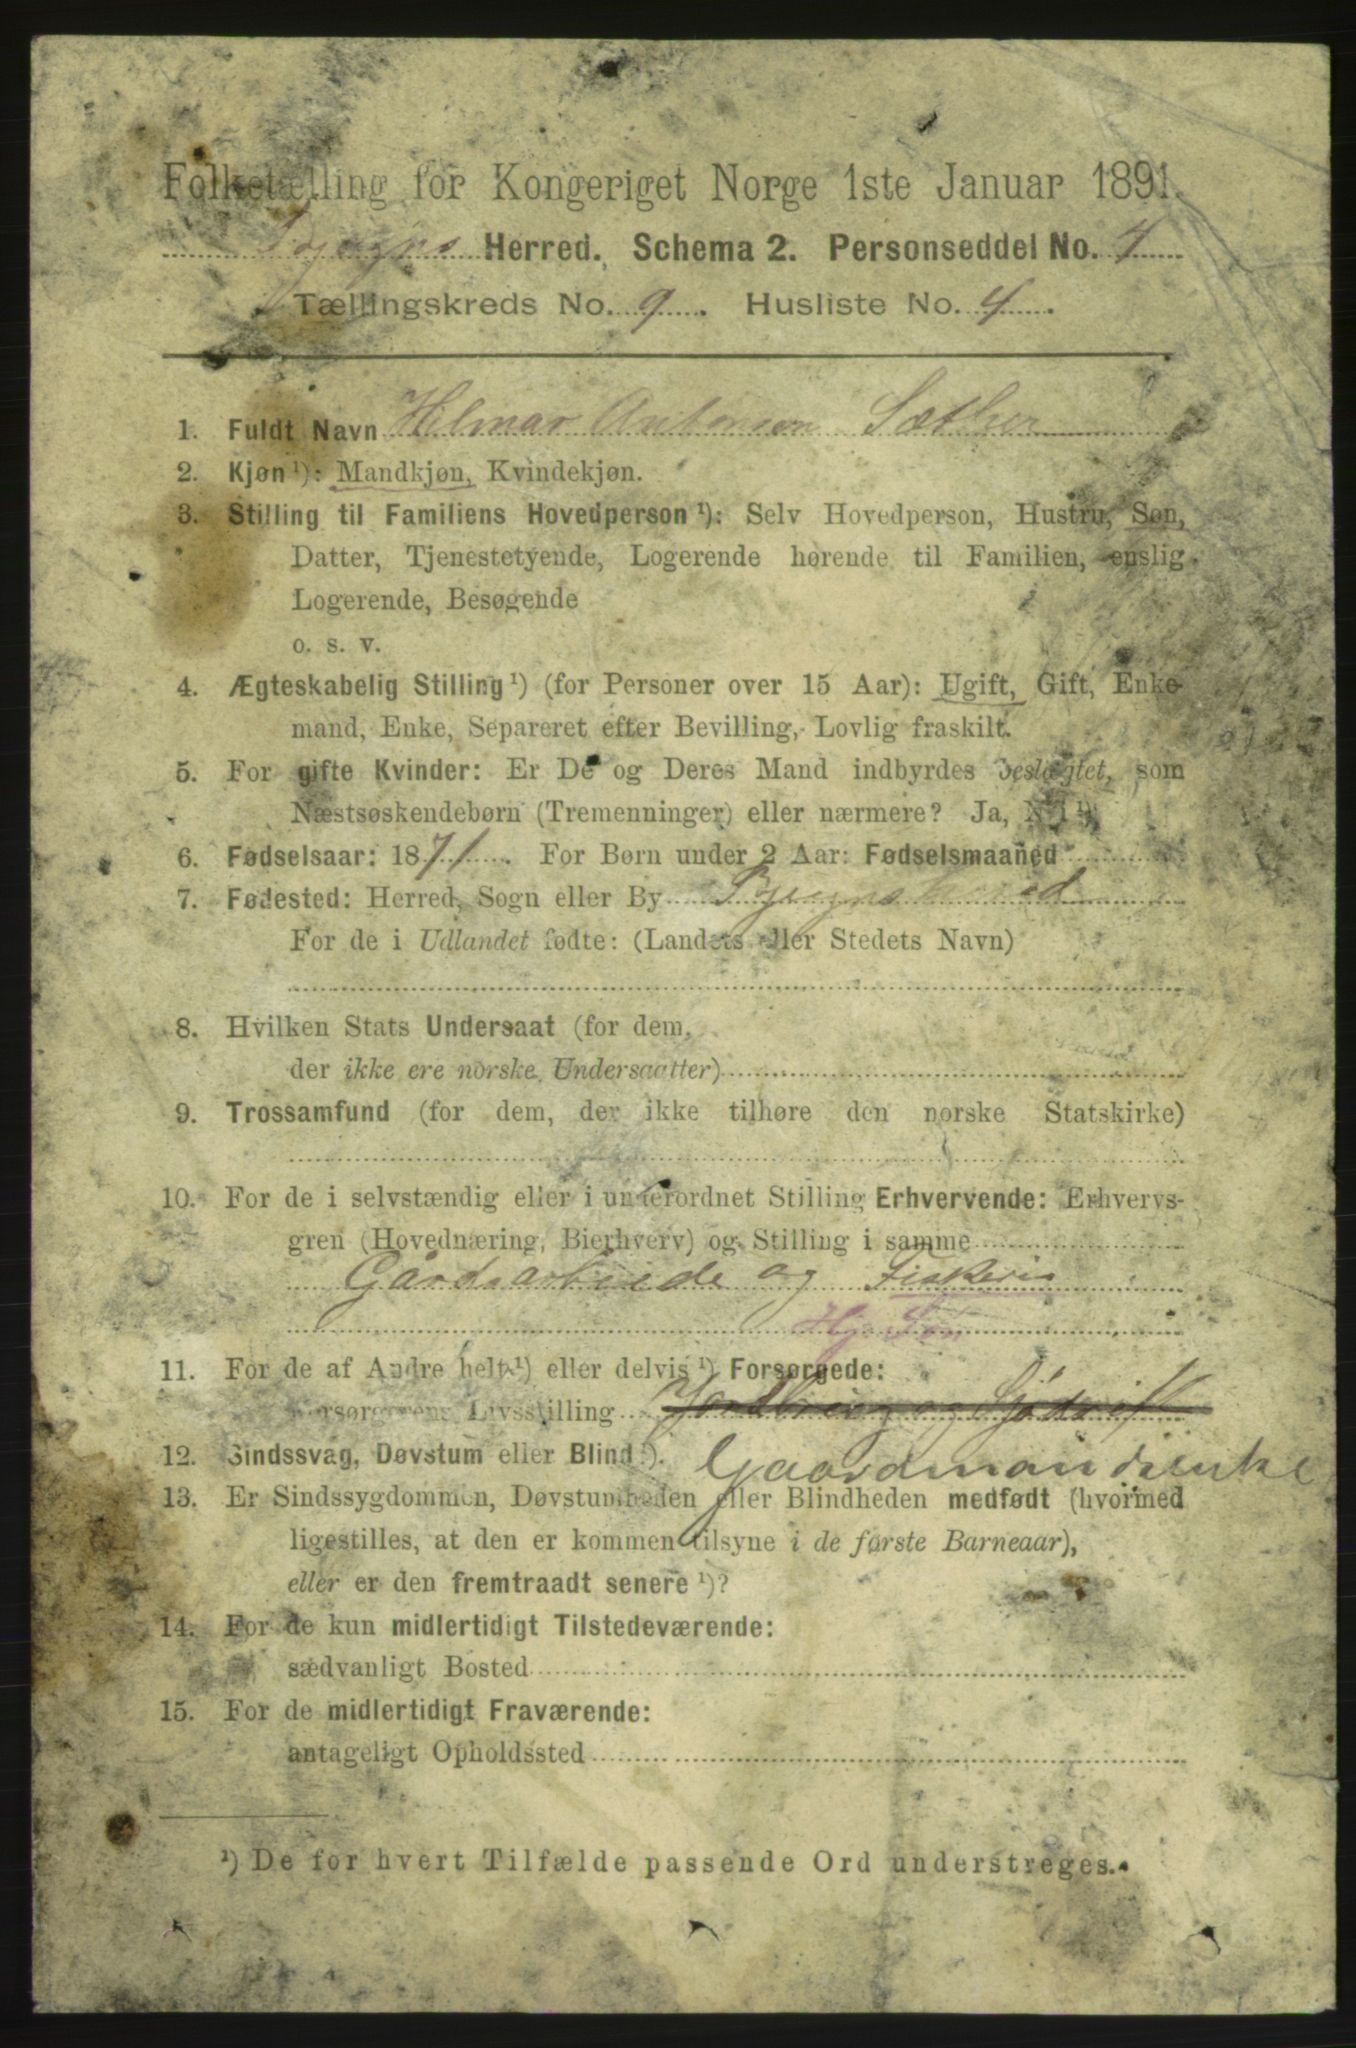 Folketælling for Kongeriget Norge 1ste Januar 1891.
Bjugns Herred. Schema 2. Personseddel No. 4
Tællingskreds No. 9. Husliste No. 4.
1. Fuldt Navn Hilmar Antonsen Sæther
2. Kjøn ¹): Mandkjøn, Kvindekjøn.
3. Stilling til Familiens Hovedperson ¹): Selv Hovedperson, Hustru, Søn,
Datter, Tjenestetyende, Logerende hørende til Familien, enslig
Logerende, Besøgende
o. s. v.
4. Ægteskabelig Stilling ¹) (for Personer over 15 Aar): Ugift, Gift, Enke-
mand, Enke, Separeret efter Bevilling, Lovlig fraskilt.
5. For gifte Kvinder: Er De og Deres Mand indbyrdes beslægtet, som
Næstsøskendebørn (Tremenninger) eller nærmere? Ja, Nei ¹)
6. Fødselsaar: 1871. For Børn under 2 Aar: Fødselsmaaned
7. Fødested: Herred, Sogn eller By Bjugns herred
For de i Udlandet fødte: (Landets eller Stedets Navn)
8. Hvilken Stats Undersaat (for dem,
der ikke ere norske Undersaatter)
9. Trossamfund (for dem, der ikke tilhøre den norske Statskirke)
10. For de i selvstændig eller i underordnet Stilling Erhvervende: Erhvervs-
gren (Hovednæring, Bierhverv) og Stilling i samme
Gårdsarbeide og Fiskeri
Hj. Søn
11. For de af Andre helt ¹) eller delvis ¹) Forsørgede:
Forsørgerens Livsstilling Jordbrug og Sjødrift
12. Sindssvag, Døvstum eller Blind ¹). Gaardmandsenke
13. Er Sindssygdommen, Døvstumheden eller Blindheden medfødt (hvormed
ligestilles, at den er kommen tilsyne i de første Barneaar),
eller er den fremtraadt senere ¹)?
14. For de kun midlertidigt Tilstedeværende:
sædvanligt Bosted
15. For de midlertidigt Fraværende:
antageligt Opholdssted
¹) De for hvert Tilfælde passende Ord understreges.